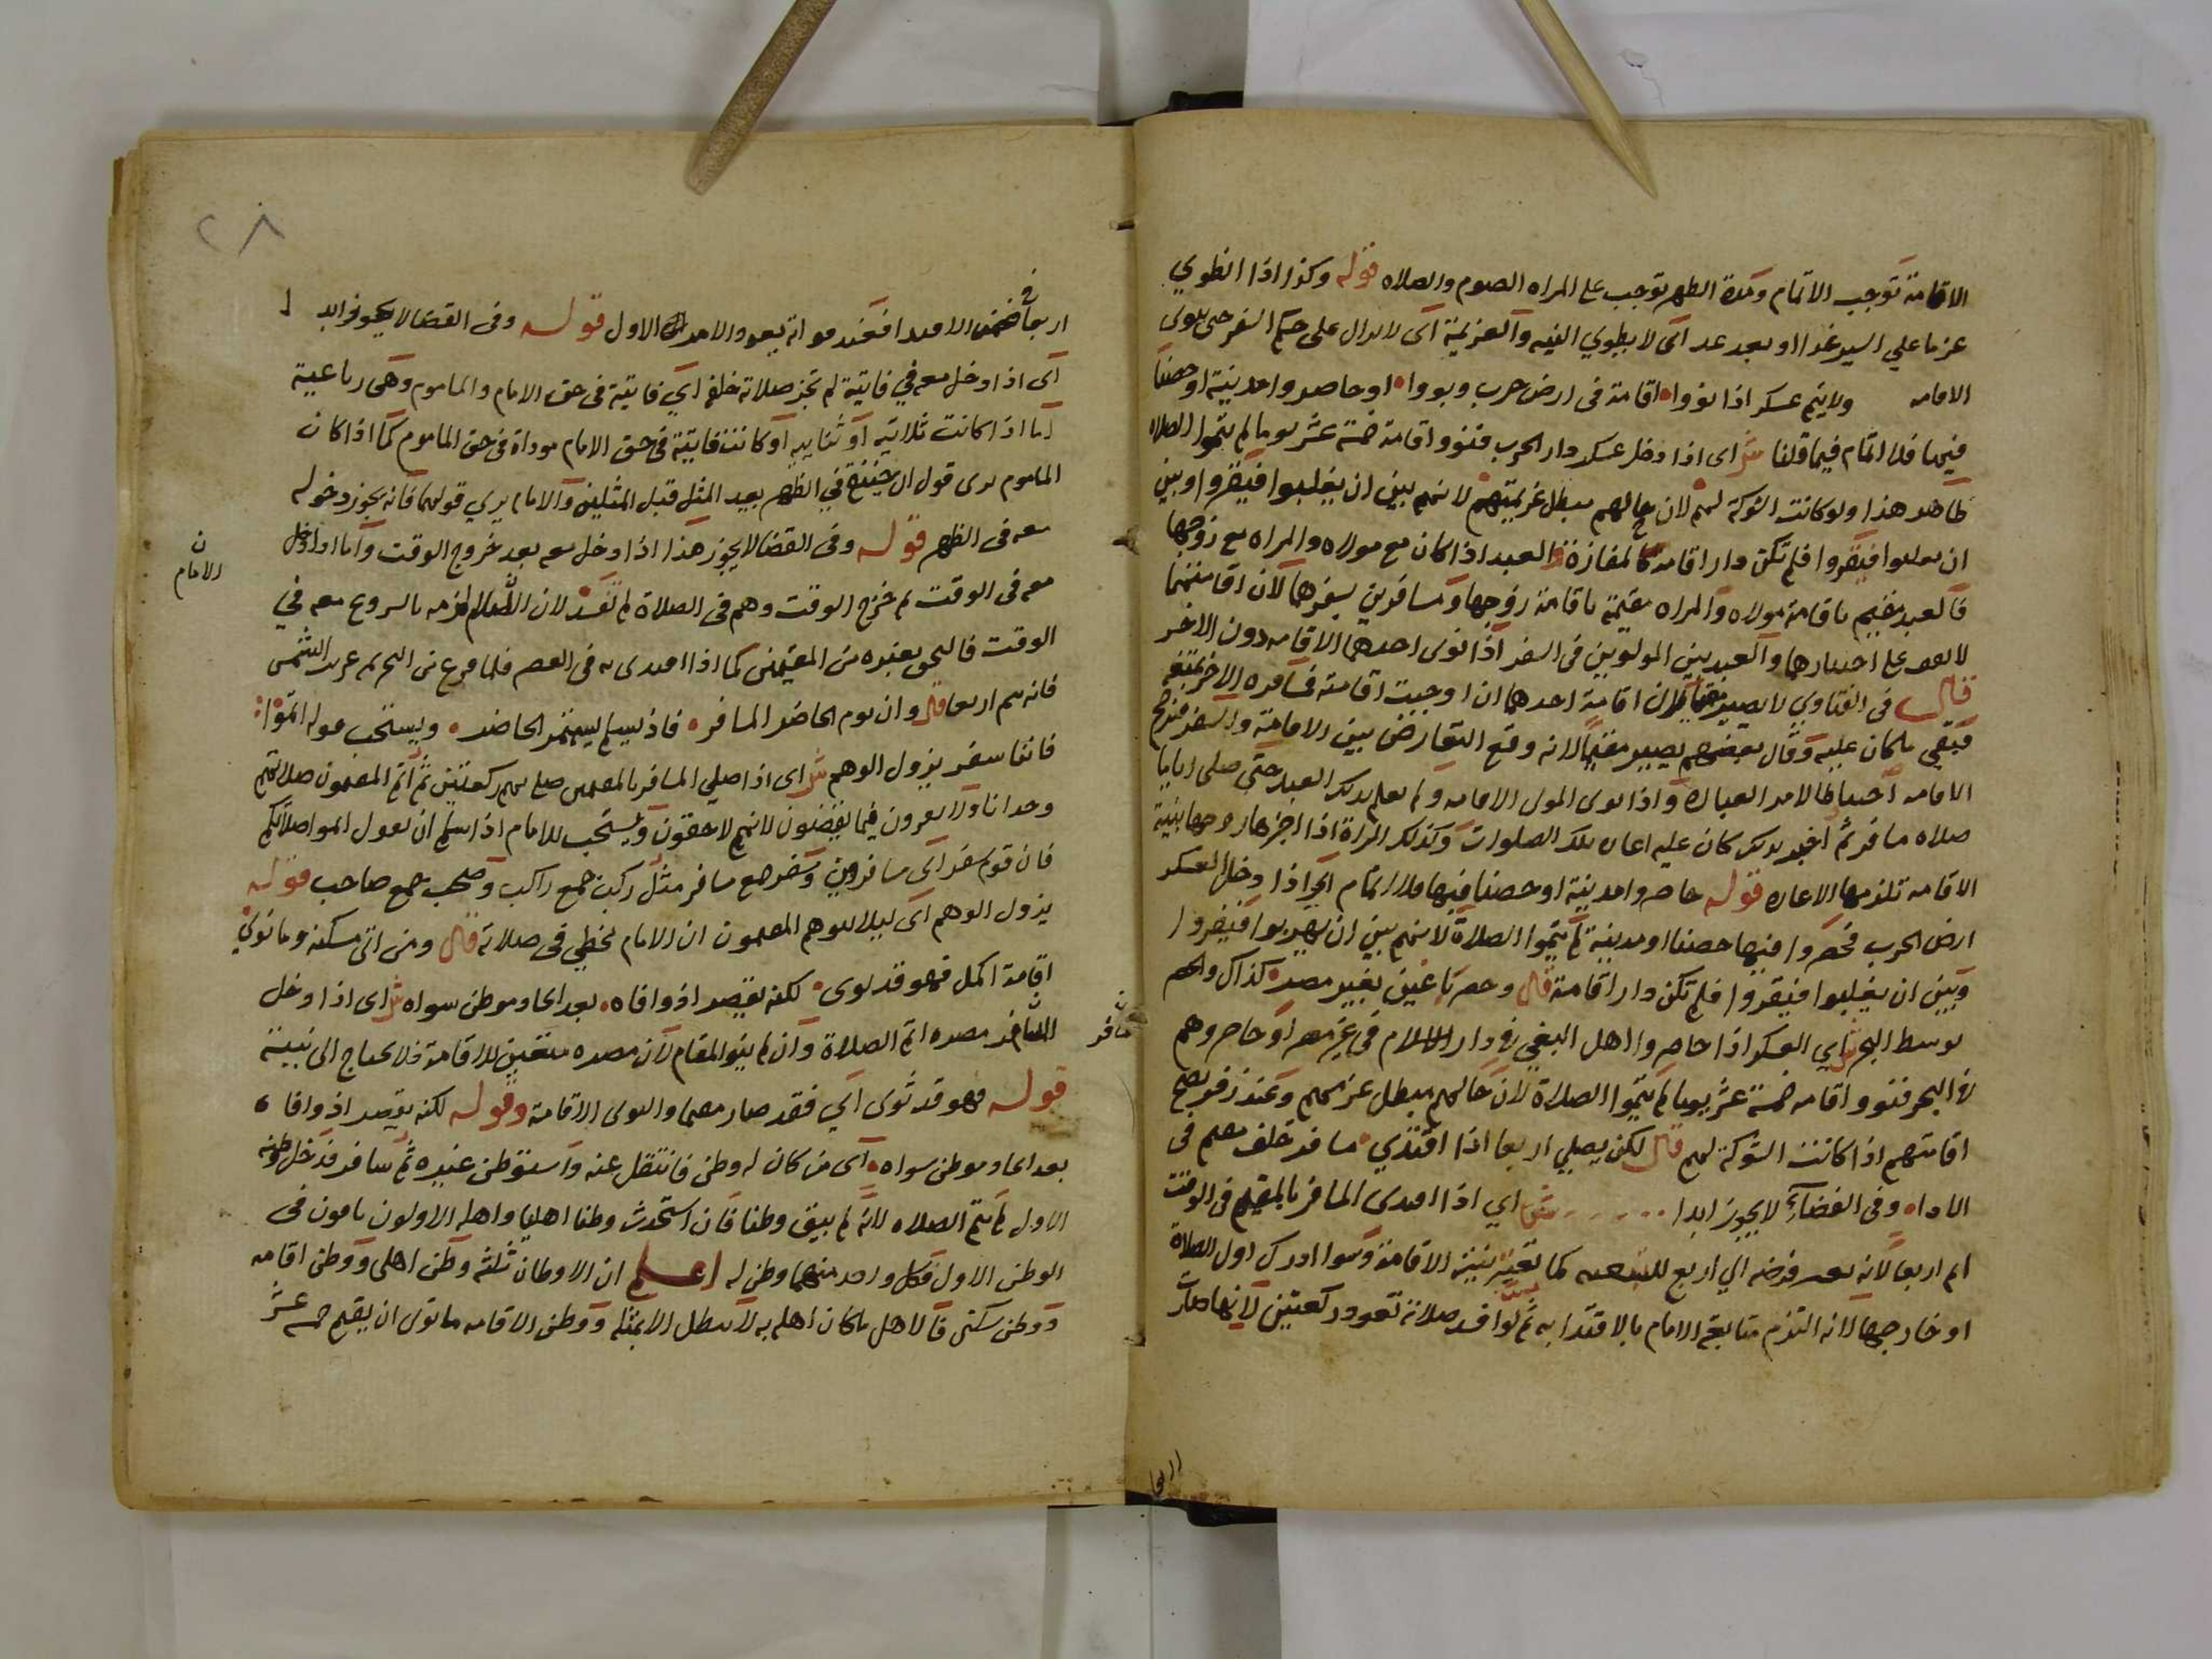 الاقامة توجب الاتمام ومدة الطهر توجب على المراه الصوم والصلاه قوله وكذا اذا انطوي
عزما علي السير غدا او بعد غد اى لا بطوي النيه والعزيمة اى لايزال على حكم السفر حتى ينوى
الاقامه ولايتم عسكر اذا نووا اقامة فى ارض حرب ونووا او حاصروا مدينة او حصنا
فيها فلا اتمام فيما قلنا ش اى اذا دخل عسكر دار الحرب فنووا اقامة خمسة عشر يوما لم يتموا الصلاه
ظاهر هذا ولو كانت الشوكة لهم لان حالهم يبطل عزيمتهم لانهم بين ان يغلبوا فيقروا وبين
ان يغلبوا فيفروا فلم تكن دار اقامة كالمفازة العبد اذا كان مع مولاه والمراه مع زوجها
فالعبد مقيم باقامة مولاه والمراه مقيمة باقامة زوجها ومسافرين بسفرهما لان اقامتهما
على اختيارهما والعبد بين الموليين فى السفر اذا نوى احدهما الاقامه دون الاخر
قال فى الفتاوي لا يصير مقيما لان اقامة احدهما ان اوجبت اقامته فسافره الاخر يمنعه
فيبقى ماكان عليه وقال بعضهم يصير مقيما لانه وقع التعارض بين الاقامة والسفر فترجح
الاقامه احتياطا لامر العبادة واذا نوى المولى الاقامه ولم يعلم بذلك العبد حتى صلى اياما
صلاه مسافر ثم اخبر بذلك كان عليه اعاده تلك الصلوات وكذلك المراة اذا اخبرها زوجها بنية
الاقامه تلزمها الاعاده قوله حاصروا مدينة او حصنا فيها فلا اتمام اى اذا دخل العسكر
ارض الحرب فحصروا فيها حصنا او مدينة لم يتموا الصلاة لانهم بين ان يهربوا فيفروا
وبين ان يغلبوا فيقروا فلم تكن دار اقامة قال وحصر باغين بغير مصر كذاك والحصر
بوسط البحر ش اي العسكر اذا حاصروا اهل البغي فى دار الاسلام فى غير مصر او حاصروهم
فى البحر فنووا اقامه خمسة عشر يوما لم يتموا الصلاة لان حالهم يبطل عزمهم وعند زفر يصح
اقامتهم اذا كانت الشوكة لهم قال لكن يصلي اربعا اذا اقتدي مسافر خلف مقيم فى
الاداه وفى القضاء لا يجوز ابدا ش اي اذا اقتدى المسافر بالمقيم فى الوقت
اتم اربعا لانه يتغير فرضه الي اربع للتبعيه كما تغير بنية الاقامة وسوا ادرك اول الصلاة
او خارجها لانه التزم متابعة الامام بالاقتدا به ثم لو افسد صلاته تعود ركعتين لانها صارت
اربعا
٢٨
اربعا ضمن الاقتدا فعند فواته يعود الامر الى الاول قوله وفى القضا لا يجوز ابدا
اى اذا دخل معه في فايتة لم تجز صلاته خلفه اي فايتة فى حق الامام والماموم وهى رباعية
اما اذا كانت ثلاثيه او ثنايية او كانت فايتة فى حق الامام موداة فى حق الماموم كما اذا كان
الماموم يرى قول ابى حنيفة في الظهر بعد المثل قبل المثلين والامام يري قولهما فانه يجوز دخوله
معه فى الظهر قوله وفى القضا لا يجوز هذا اذا دخل معه بعد خروج الوقت واما اذا دخل
معه فى الوقت ثم خرج الوقت وهم فى الصلاة لم تفسد لان الاتمام لزمه بالشروع معه في
الوقت فالتحق بغيره من المقيمين كما اذا اقتدى به فى العصر فلما فرغ من التحريمه غربت الشمس
فانه يتم اربعا قال وان يوم الحاضر المسافر فاذ يسلم ليتم الحاضر ويستحب قوله اتموا
فاننا سفر يزول الوهم ش اى اذا صلى المسافر بالمقيمين صلى بهم ركعتين ثم اتم المقيمون صلاتهم
وحدانا ولا يقرون فيما يقضون لانهم لاحقون ويستحب للامام اذا سلم ان يقول اتموا صلاتكم
فان قوم سفر اى مسافرين وسفر جمع مسافر مثل ركب جمع راكب وصحب جمع صاحب قوله
يزول الوهم اى ليلا يتوهم المقيمون ان الامام يخطي فى صلاته قال ومن اتى مسكنه وما نوي
اقامة اكمل فهو قد ثوى لكنه يقصر اذ وافاه بعد اتخاد موطن سواه ش اى اذا دخل
المسافر مصره اتم الصلاة وان لم ينو المقام لان مصره متعين للاقامة فلا يحتاج الى نيته
قوله فهو قد ثوى اي فقد صار مقيما والثوى الاقامة وقوله لكنه يقصر اذ وافاه
بعد اتخاد موطن سواه اى من كان له وطن فانتقل عنه واستوطن غيره ثم سافر فدخل وطنه
الاول لم يتم الصلاه لانه لم يبق وطنا فان استحدث وطنا اهليا واهله الاولون باقون فى
الوطن الاول فكل واحد منهما وطن له اعلم ان الاوطان ثلثه وطن اهلى ووطن اقامه
ووطن سكنى فالاهل ماكان اهله به لا يبطل الا بمثله ووطن الاقامه ما نوى ان يقيم خمسه عشر
ن
الامام